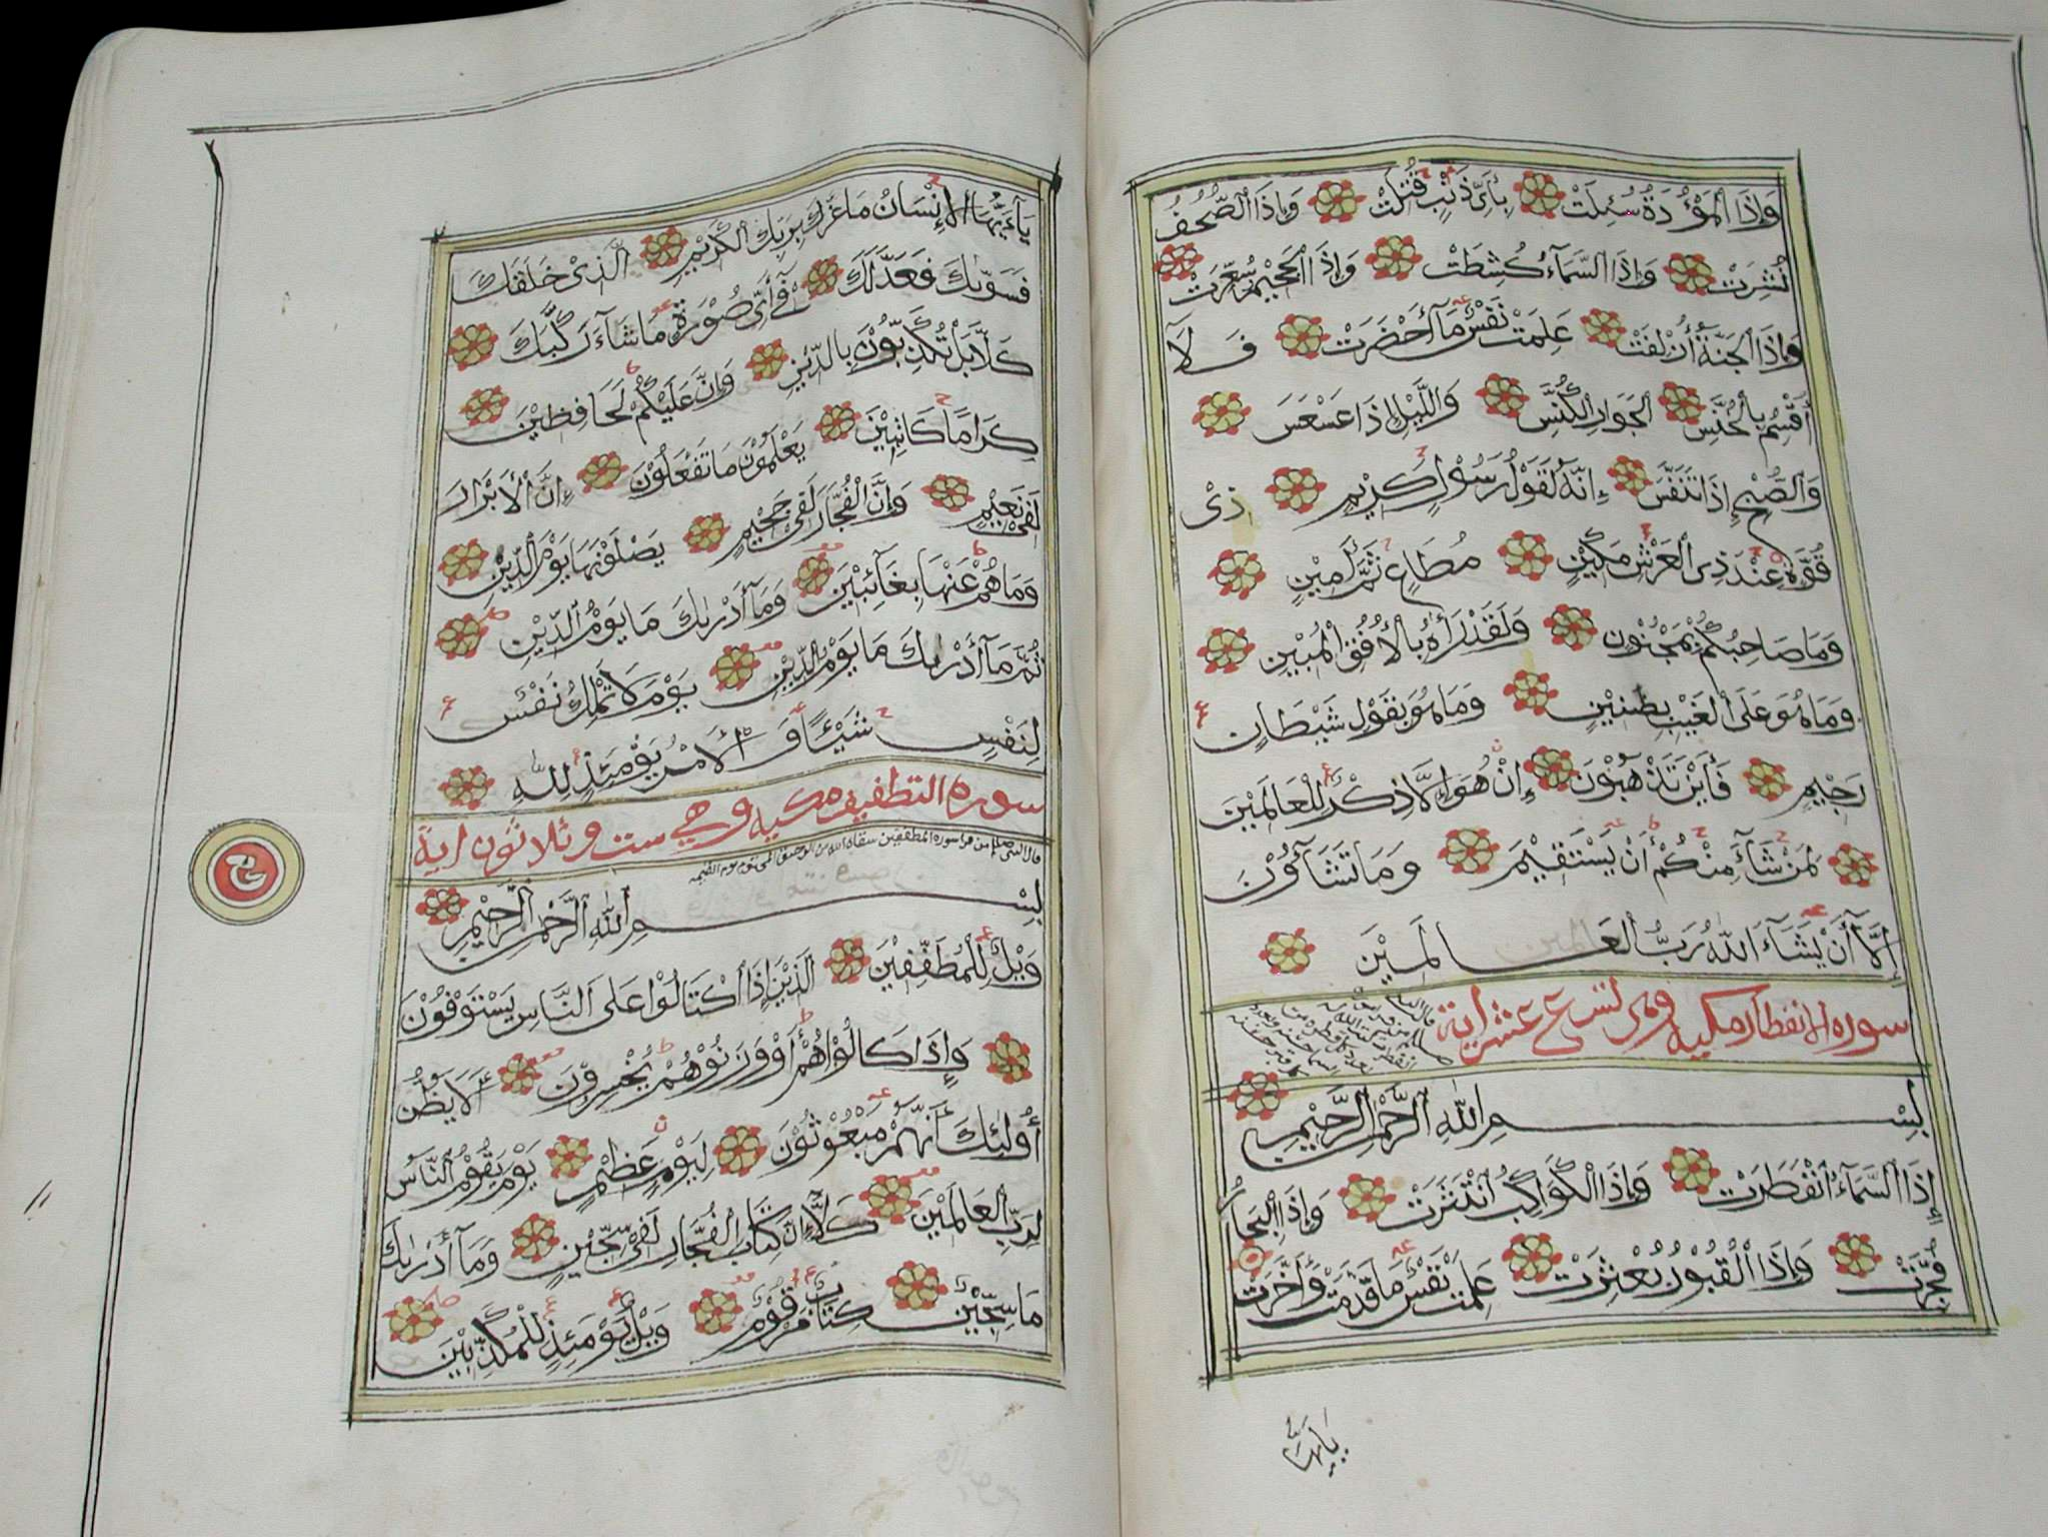 وَإِذَا ٱلْمَوْءُدَةُ سُئِلَتْ بِأَيِّ ذَنْبٍ قُتِلَتْ وَإِذَا ٱلصُّحُفُ
نُشِرَتْ وَإِذَا ٱلسَّمَآءُ كُشِطَتْ وَإِذَا ٱلْجَحِيْمُ سُعِّرَتْ
وَإِذَا ٱلْجَنَّةُ أُزْلِفَتْ عَلِمَتْ نَفْسٌ مَآ أَحْضَرَتْ فَلَآ
أُقْسِمُ بِٱلْخُنَّسِ ٱلْجَوَارِ ٱلْكُنَّسِ وَٱللَّيْلِ إِذَا عَسْعَسَ
وَٱلصُّبْحِ إِذَا تَنَفَّسَ إِنَّهُ لَقَوْلُ رَسُوْلٍ كَرِيْمٍ ذِيْ
قُوَّةٍ عِنْدَ ذِي ٱلْعَرْشِ مَكِيْنٍ مُطَاعٍ ثَمَّ أَمِيْنٍ
وَمَا صَاحِبُكُمْ بِمَجْنُوْنٍ وَلَقَدْ رَأَاهُ بِٱلْأُفُقِ ٱلْمُبِيْنِ
وَمَا هُوَ عَلَى ٱلْغَيْبِ بِظَنِيْنٍ وَمَا هُوَ بِقَوْلِ شَيْطَانٍ
رَجِيْمٍ فَأَيْنَ تَذْهَبُوْنَ إِنْ هُوَ إِلَّا ذِكْرٌ لِلْعَالَمِيْنَ
لِمَنْ شَآءَ مِنْكُمْ أَنْ يَسْتَقِيْمَ وَمَا تَشَآؤُنَ
إِلَّآ أَنْ يَشَآءَ ٱللَّهُ رَبُّ ٱلْعَالَمِيْنَ
سورة الانفطار مكية وهي تسع عشر اية
بِسْمِ ٱللَّهِ ٱلرَّحْمٰنِ ٱلرَّحِيْمِ
إِذَا ٱلسَّمَآءُ ٱنْفَطَرَتْ وَإِذَا ٱلْكَوَاكِبُ ٱنْتَثَرَتْ وَإِذَا ٱلْبِحَارُ
فُجِّرَتْ وَإِذَا ٱلْقُبُوْرُ بُعْثِرَتْ عَلِمَتْ نَفْسٌ مَا قَدَّمَتْ وَأَخَّرَتْ
يآيها
يَآءَيُّهَا ٱلْإِنْسَانُ مَا غَرَّكَ بِرَبِّكَ ٱلْكَرِيْمِ ٱلَّذِيْ خَلَقَكَ
فَسَوّٰىكَ فَعَدَّلَكَ فِيْٓ أَيِّ صُوْرَةٍ مَا شَآءَ رَكَّبَكَ
كَلَّا بَلْ تُكَذِّبُوْنَ بِالدِّيْنِ وَإِنَّ عَلَيْكُمْ لَحَافِظِيْنَ
كِرَامًا كَاتِبِيْنَ يَعْلَمُوْنَ مَا تَفْعَلُوْنَ إِنَّ ٱلْأَبْرَارَ
لَفِيْ نَعِيْمٍ وَإِنَّ ٱلْفُجَّارَ لَفِيْ جَحِيْمٍ يَصْلَوْنَهَا يَوْمَ ٱلدِّيْنِ
وَمَا هُمْ عَنْهَا بِغَآئِبِيْنَ وَمَآ أَدْرٰىكَ مَا يَوْمُ ٱلدِّيْنِ
ثُمَّ مَآ أَدْرٰىكَ مَا يَوْمُ ٱلدِّيْنِ يَوْمَ لَا تَمْلِكُ نَفْسٌ
لِنَفْسٍ شَيْئًا وَٱلْأَمْرُ يَوْمَئِذٍ لِلّٰهِ
سورة التطفيف مكية وهي ست وثلاثون اية
قال النبي صلعم من قرا سورة المطففين سقاه الله من الرحيق المختوم يوم القيمة
بِسْمِ ٱللَّهِ ٱلرَّحْمٰنِ ٱلرَّحِيْمِ
وَيْلٌ لِلْمُطَفِّفِيْنَ ٱلَّذِيْنَ إِذَا ٱكْتَالُوْا عَلَى ٱلنَّاسِ يَسْتَوْفُوْنَ
وَإِذَا كَالُوْاهُمْ أَوْ وَزَنُوْهُمْ يُخْسِرُوْنَ أَلَا يَظُنُّ
أُولٰئِكَ أَنَّهُمْ مَبْعُوْثُوْنَ لِيَوْمٍ عَظِيْمٍ يَوْمَ يَقُوْمُ ٱلنَّاسُ
لِرَبِّ ٱلْعَالَمِيْنَ كَلَّآ إِنَّ كِتَابَ ٱلْفُجَّارِ لَفِيْ سِجِّيْنٍ وَمَآ أَدْرٰىكَ
مَا سِجِّيْنٌ كِتَابٌ مَرْقُوْمٌ وَيْلٌ يَوْمَئِذٍ لِلْمُكَذِّبِيْنَ